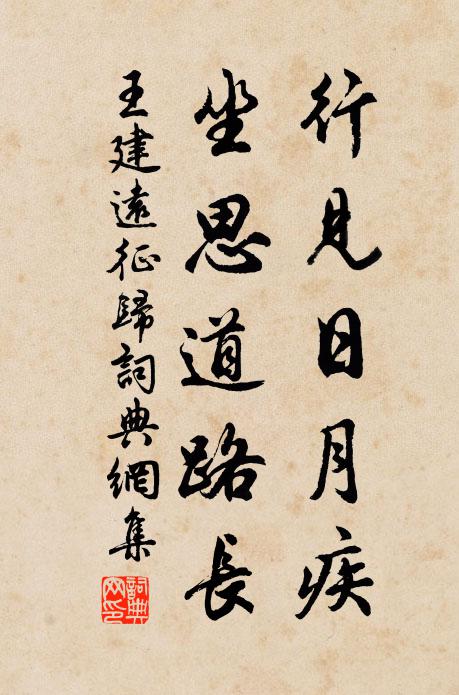 行見日月疾
坐思道路長
王建遠征歸詞典網集
詞典網印